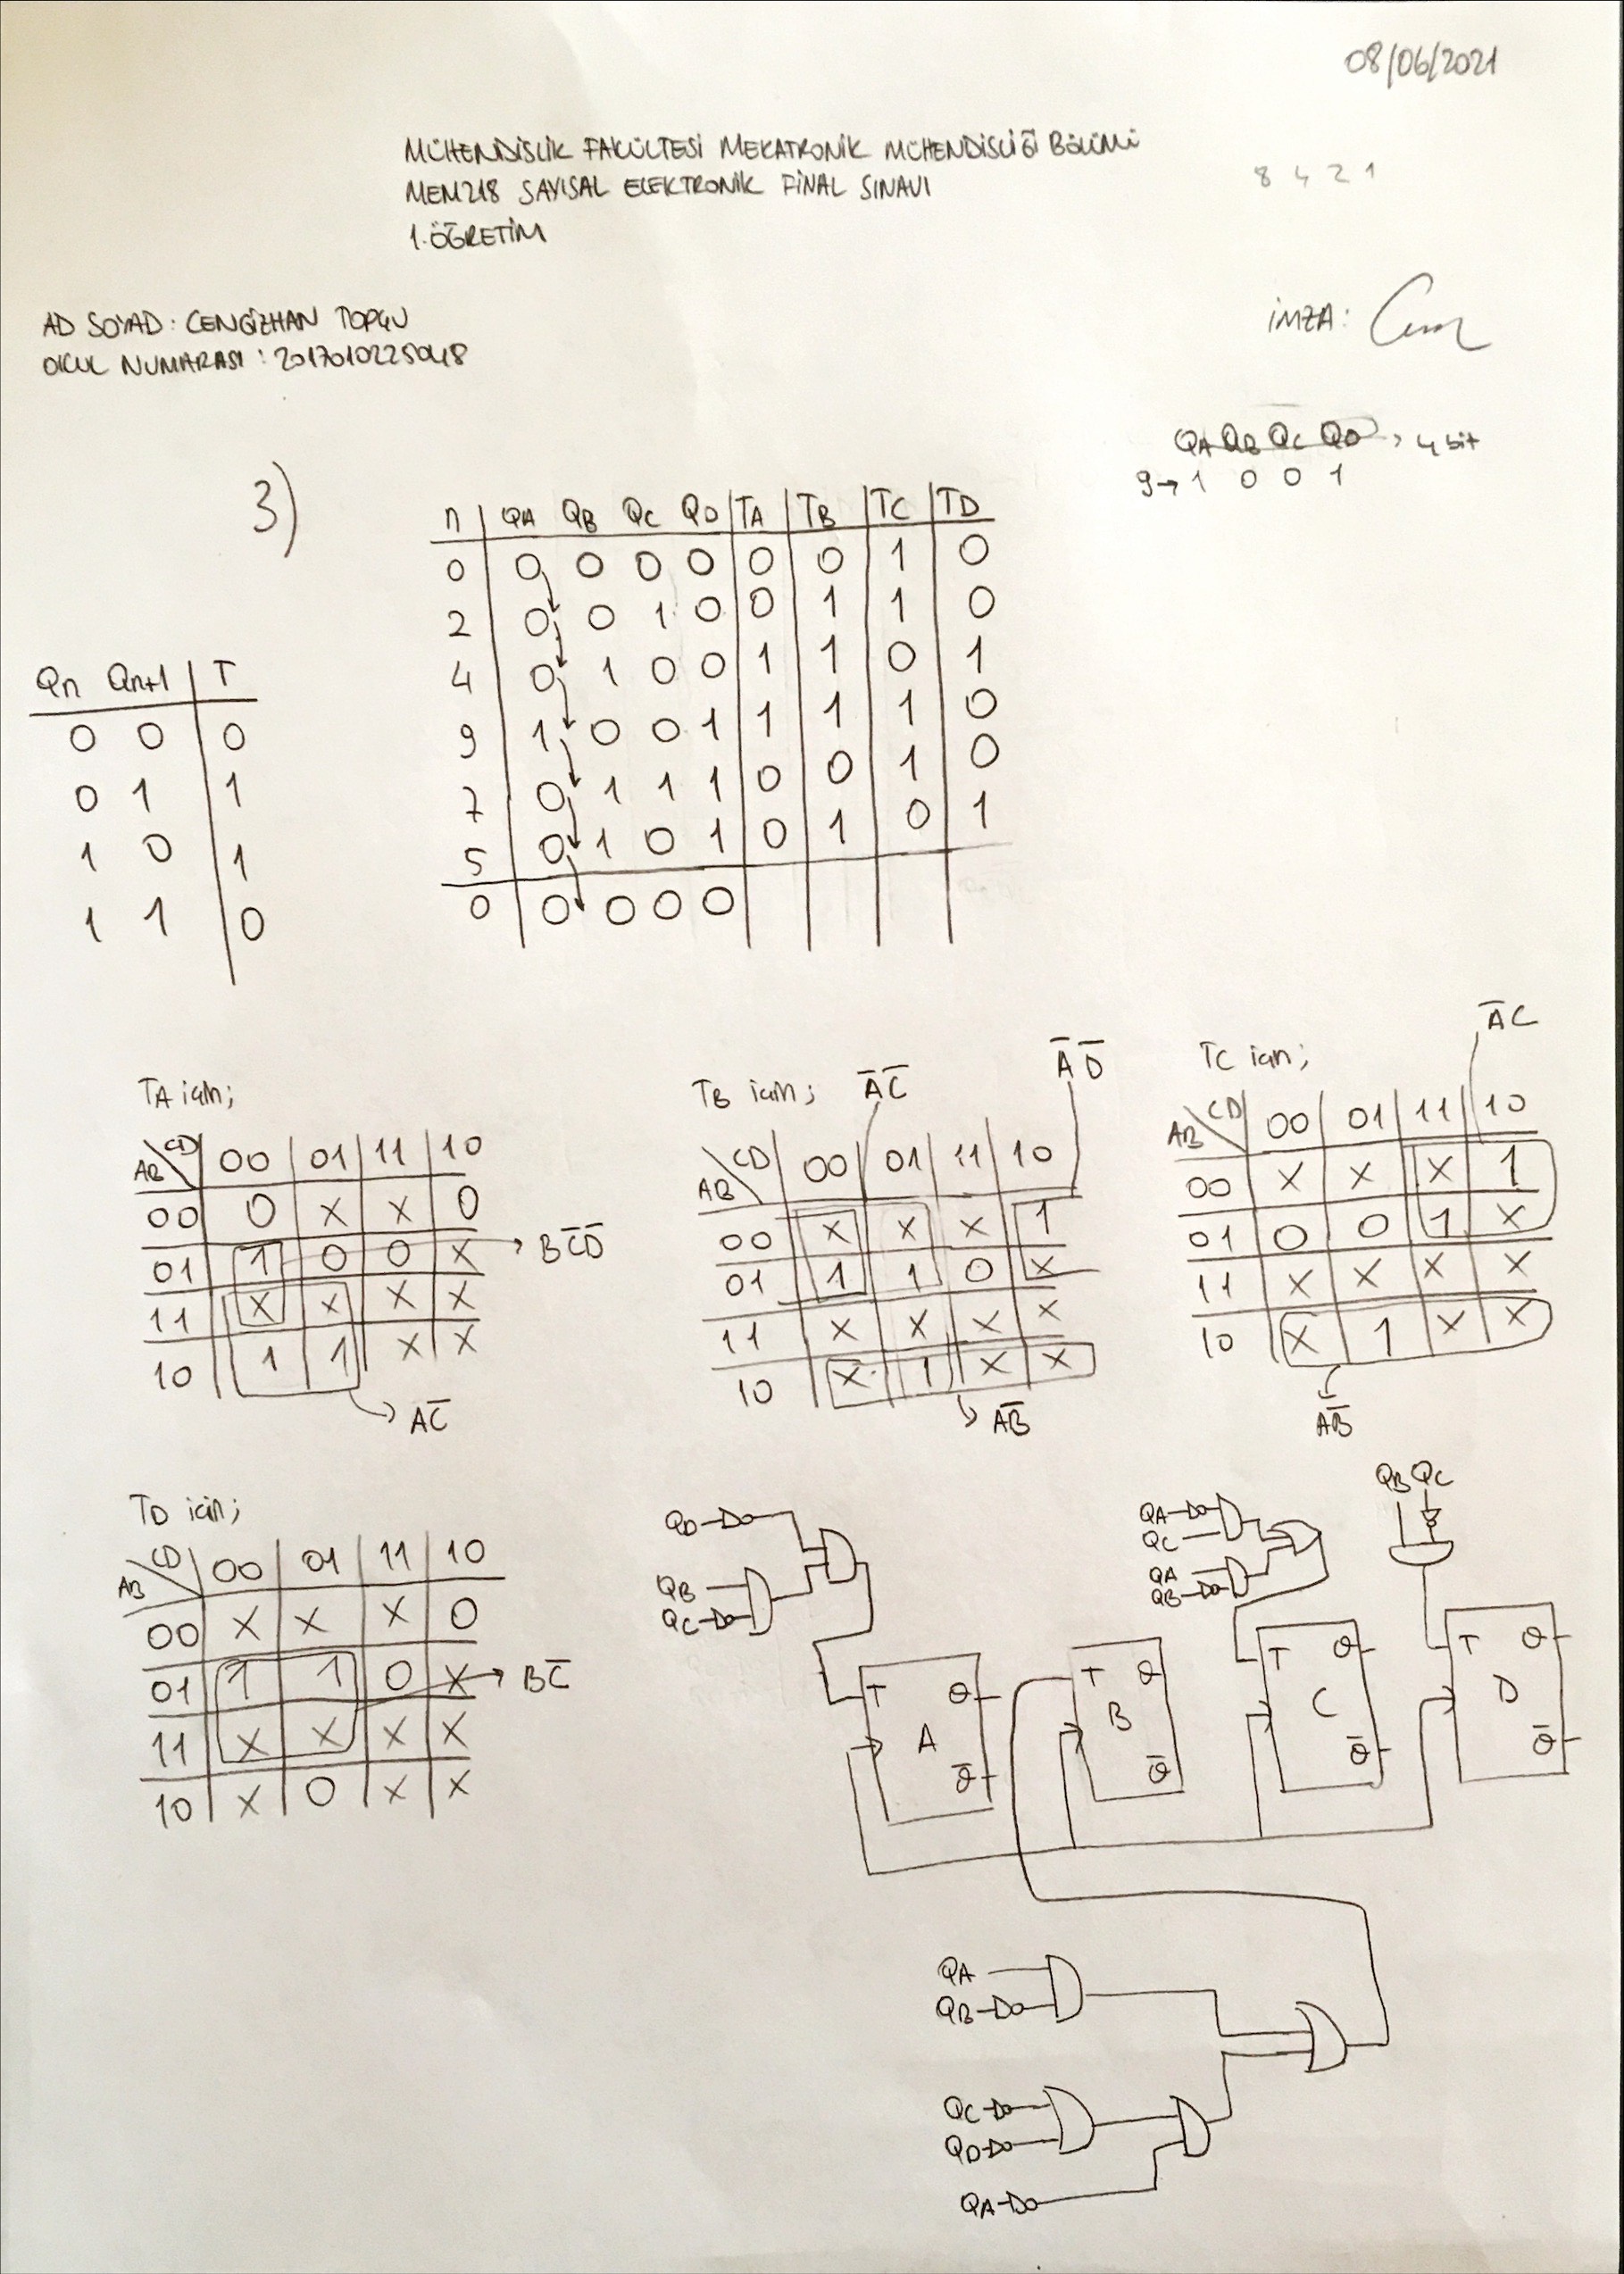 08/06/2021
MÜHENDİSLİK FAKÜLTESİ MEKATRONİK MÜHENDİSLİĞİ BÖLÜMÜ
8 4 2 1
MEM218 SAYISAL ELEKTRONİK FİNAL SINAVI
1.ÖĞRETİM
İMZA:
AD SOYAD: CENGİZHAN TOPÇU
OKUL NUMARASI: 2017010225048
QA QB QC QD → 4 bit
9→ 1 0 0 1
3)
n QA QB QC QD TA TB TC TD
0 0 0 0 0 0 0 1 0
2 0 0 1 0 0 1 1 0
4 0 1 0 0 1 1 0 1
9 1 0 0 1 1 1 1 0
7 0 1 1 1 0 0 1 0
5 0 1 0 1 0 1 0 1
0 0 0 0 0
Qn Qn+1 T
0 0 0
0 1 1
1 0 1
1 1 0
TA için;
AB CD 00 01 11 10
00 0 X X 0
01 1 0 0 X → BC̅D̅
11 X X X X
10 1 1 X X
AC̅
TB için; A̅C̅ A̅D̅
AB CD 00 01 11 10
00 X X X 1
01 1 1 0 X
11 X X X X
10 X 1 X X
AB̅
TC için; A̅C
AB CD 00 01 11 10
00 X X X 1
01 0 0 1 X
11 X X X X
10 X 1 X X
AB̅
TD için;
AB CD 00 01 11 10
00 X X X 0
01 1 1 0 X → BC̅
11 X X X X
10 X 0 X X
QD
QB
QC
QA
QC
QA
QB
QB QC
T Q
A
Q̅
T Q
B
Q̅
T Q
C
Q̅
T Q
D
Q̅
QA
QB
QC
QD
QA